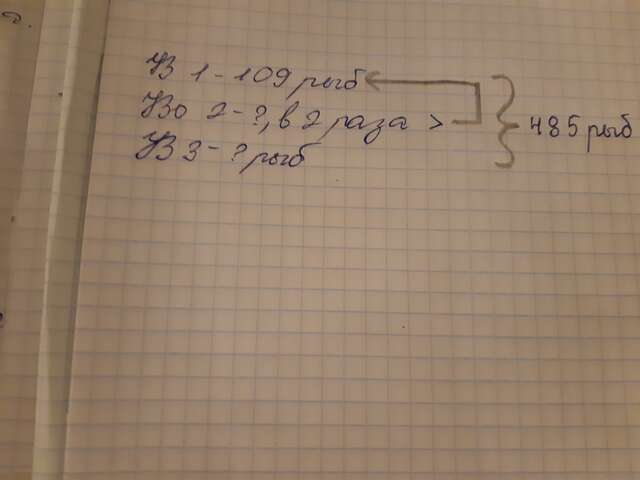 В 1 - 109 рыб
Во 2 - ?, в 2 раза >
В 3 - ? рыб
485 рыб